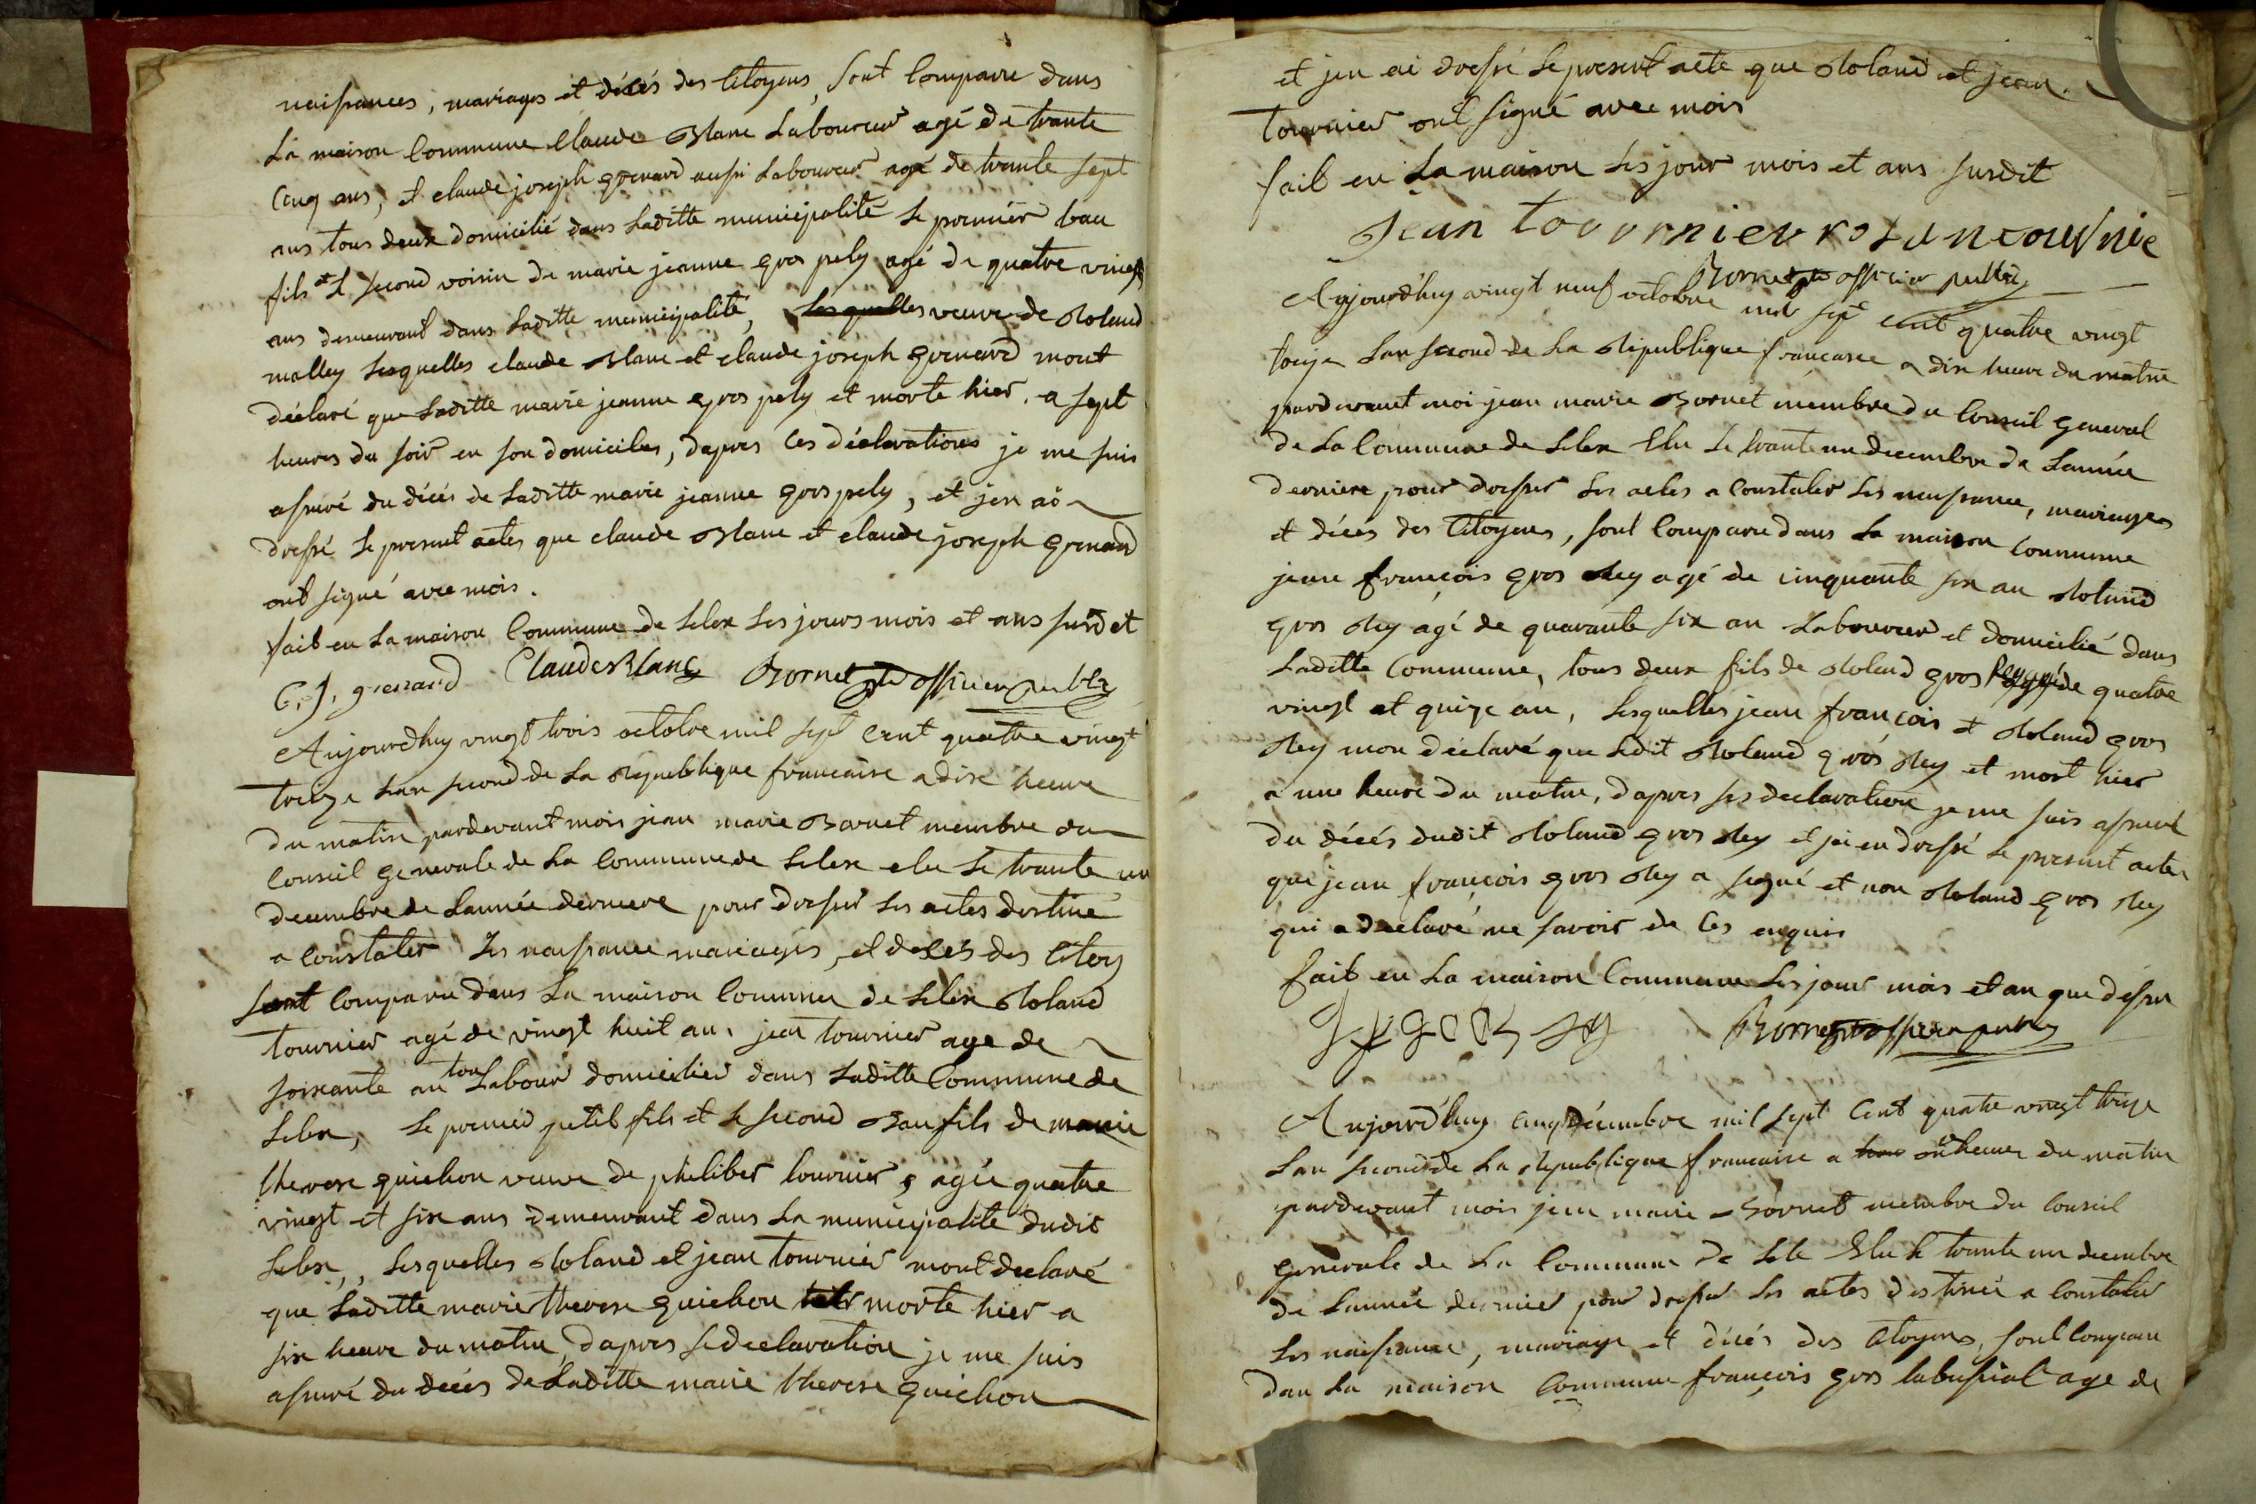 naissances, mariages et décés des Citoyens, sont Comparu dans
La maison Commune Claude Blanc Laboureur agé de trante
Cinq ans, et claude joseph grenard aussi Laboureur agé de trante sept
ans tous deux domicilié dans Laditte municipalité le premier bau
fils et le second voisin de marie jeanne gros pely agé de quatre vingt
ans demeurant dans Laditte municipalité, Lesquelles veuve de Roland
malley Lesquelles claude Blanc et claude joseph grenard mont
déclaré que Laditte marie jeanne gros pely et morte hier, a sept
heures du soir en son domiciles, dapres Ces déclarations je me suis
assuré du décés de Laditte marie jeanne gros pely, et jen ai
dressé Le present actes que claude Blanc et claude joseph grenard
ont signé avec mois.
fait en La maison Commune de Lelex Les jours mois et ans susdit
C. J. grenard Claude Blanc Bornet officier public
Aujourdhuy vingt trois octobre mil sept cent quattre vingt
treize Lan second de La Republique francaise a dix heure
du matin pardevant mois jean marie Bornet membre du
Conseil generale de La Commune de Lelex elu Le trante un
decembre de Lannée derniere pour dresser Les actes destiné
a Constater Les naissance mariages, et deces des Citoy
sont Comparu dans La maison Commu de Lelex Roland
tournier agé de vingt huit an, jean tournier age de
soixante an tou Labour domicilier dans Laditte Commune de
Lelex, Le premier petit fils et le second Baufils de marie
therese guichon veuve de philiber tournier, agée quatre
vingt et six ans demeurant dans La municipalité dudit
Lelex, Lesquelles Roland et jean tournier mont declaré
que Laditte marie therese guichon morte hier a
six heure du matin, dapres se declaration je me suis
assuré du decés de Laditte marie therese guichon
et jen ai dressé Le present acte que Roland et jean
tournier ont signé avec mois
fait en La maison Les jour mois et ans susdit
Jean toovrnier rolan tournie
Bornet officier public
Aujourdhuy vingt neuf octobre mil sept cent quatre vingt
treize Lan second de La Republique francaise a dix heure du matin
pardevant moi jean marie Bornet membre du Conseil general
de La Commune de Lelex Elu Le trante un decembre de Lannée
derniere pour dresser Les actes a Constater Les naissance, mariages
et décés des Citoyens, sont Comparu dans La maison Commune
jean françois gros Rey agé de cinquante six an Roland
gros Rey agé de quarante six an Laboureur et domicilié dans
Laditte Commune, tous deux fils de Roland gros Rey agé de quatre
vingt et quize an, Lesquelles jean francois et Roland gros
Rey mon déclaré que Ledit Roland gros Rey et mort hier
a une heure du matin, dapres ses declaration je me suis assuré
du décés dudit Roland gros Rey et jai en dressé Le present actes
que jean françois gros Rey a signé et non Roland gros Rey
qui a declaré ne savoir de Ces enquis
fait en La maison Commune Les jour mois et an que dessu
Bornet officier public
Aujourdhuy cinq décembre mil sept Cent quatre vingt trize
Lan second de La Republique francaise a on heure du matin
pardevant mois jean marie Bornet membre du Conseil
generale de La Commune de Lele Elu le trante un decembre
de Lannée dernier pour dresser Les actes destiné a Constater
Les naissance, mariage et décés des Citoyens, sont Comparu
dan La maison Commune françois gros labussiat age de